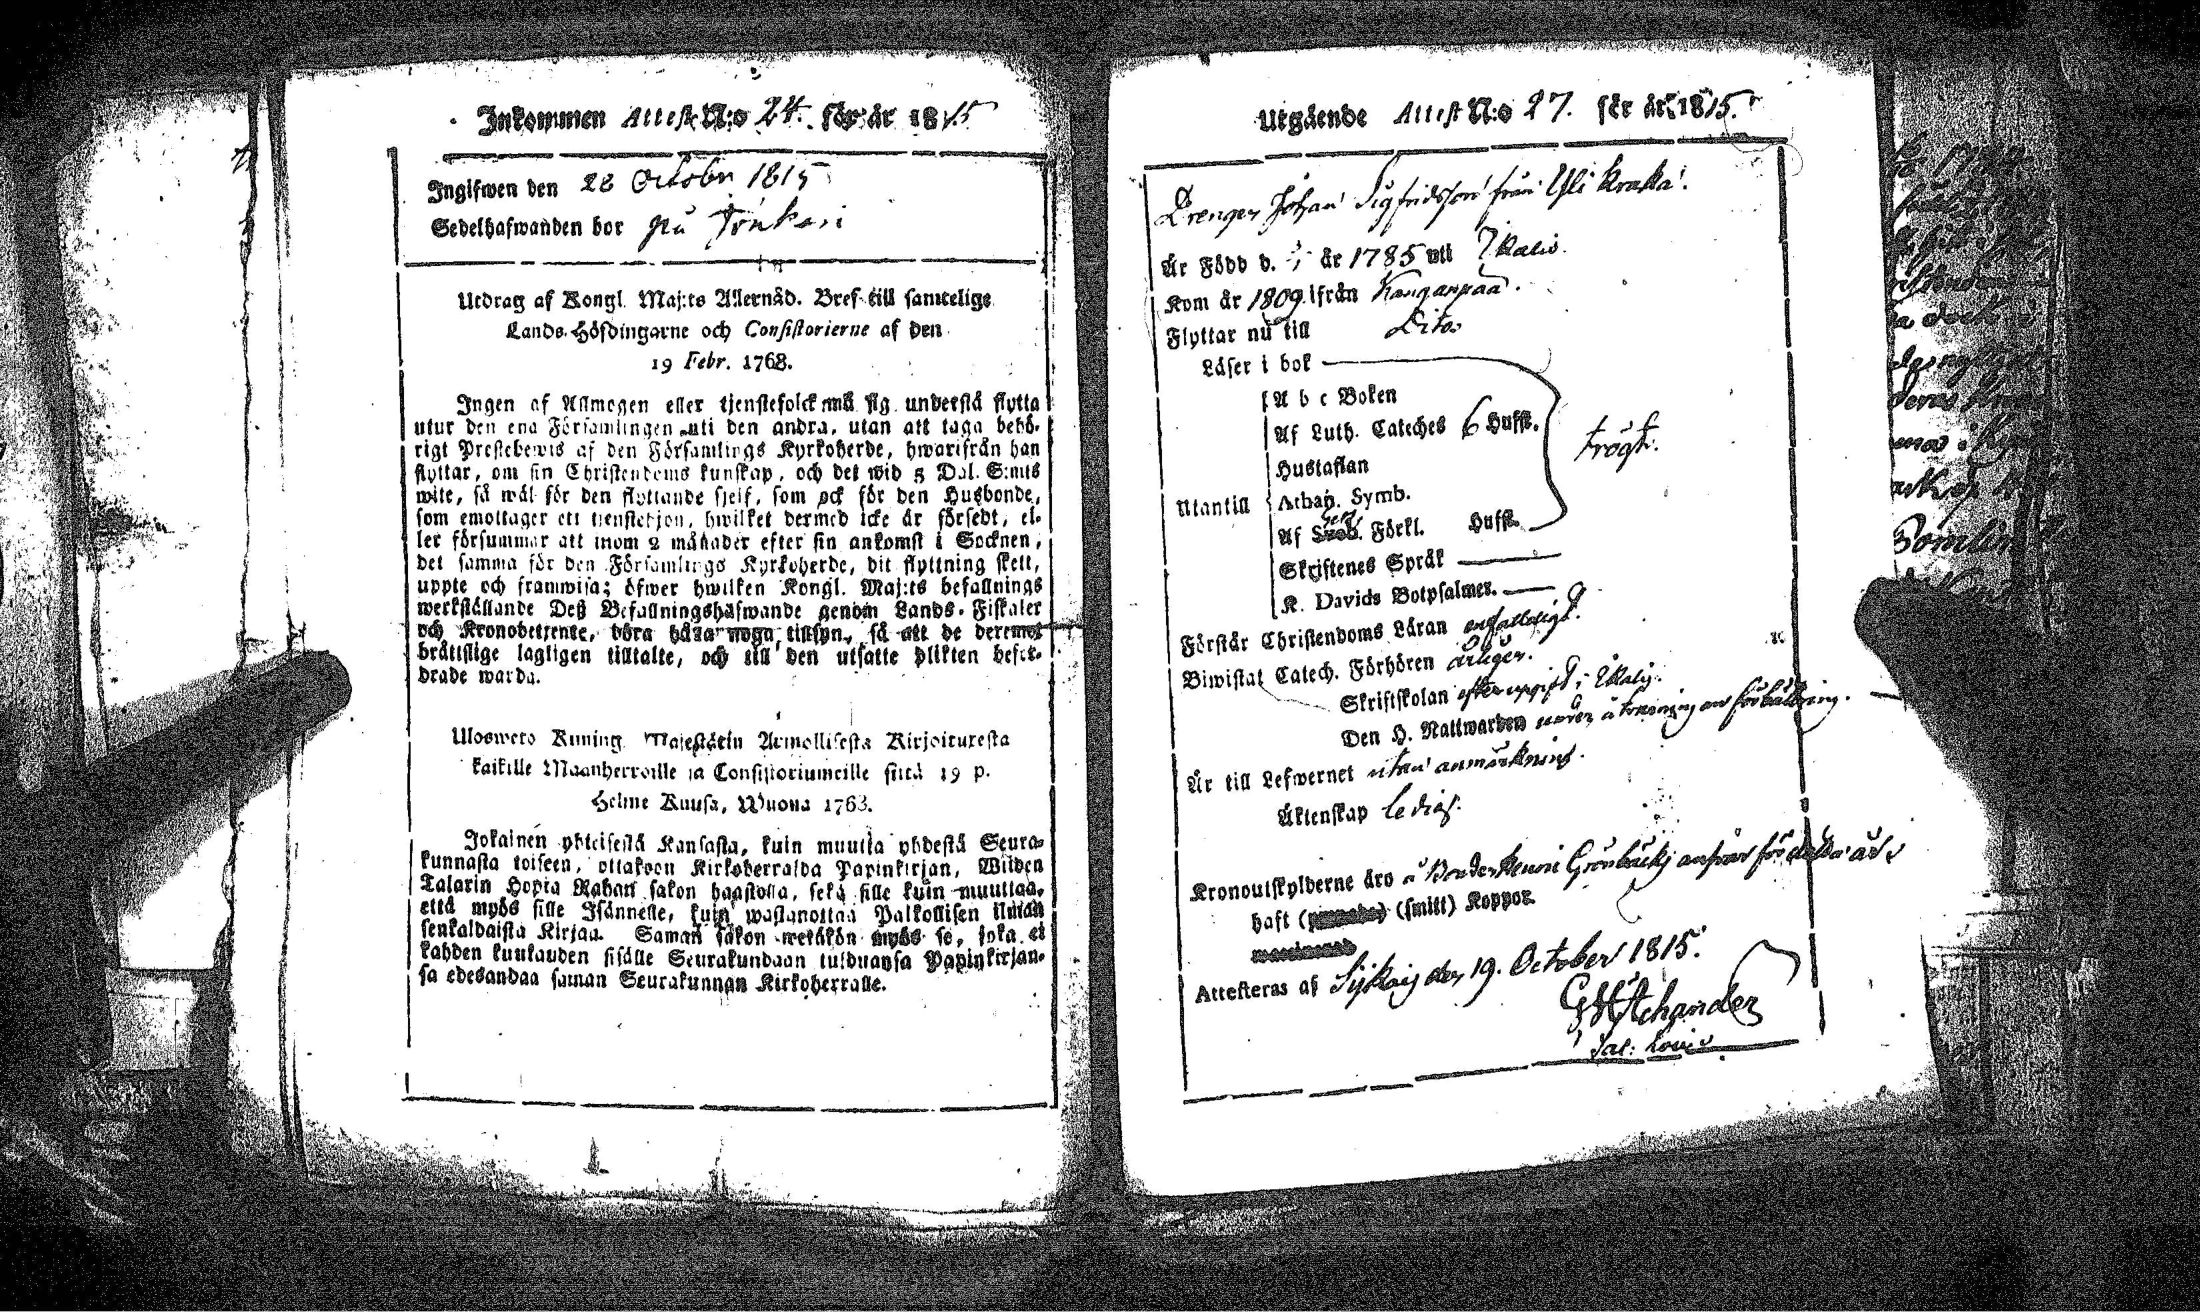 Inkommen Attest N:o 24. för år 1815
Ingifwen den 28 Octobr 1815
Sedelhafwanden bor på
Utdrag af Kongl. Maj:ts Allernåd. Bref till samtelige
Lands-Höfdingarne och Consistorierne af den
19 Febr. 1768.
Ingen af Allmogen eller tjenstefolck må sig understå flytta
utur den ena Församlingen uti den andra, utan att taga behö-
rigt Prestebewis af den Församlings Kyrkoherde, hwarifrån han
flyttar, om sin Christendoms kunskap, och det wid 5 Dal. S:mts
wite, så wäl för den flyttande sjelf, som ock för den Husbonde,
som emottager ett tienstehjon, hwilket dermed icke är försedt, el-
ler försummar att inom 2 månader efter sin ankomst i Socknen,
det samma för den Församlings Kyrkoherde, dit flyttning skett,
uppte och framwisa; öfwer hwilken Kongl. Maj:ts befallnings
werkställande Deß Befallningshafwande genom Lands-Fiskaler
och Kronobetjente, böra hafa noga tillsyn, så att de deremot
bråttslige lagligen tilltalte, och till den utsatte plikten befor-
drade warda.
Ulosweto Kuning. Majestätin Armollisesta Kirjoituresta
kaikille Maanherroille ja Consistoriumeille siitä 19 p.
Helme Kuusa, Wuona 1763.
Jokainen yhteisestä Kansasta, kuin muutta yhdestä Seura-
kunnasta toiseen, ottakoon Kirkoherralda Papinkirjan, Wiiden
Talarin Hopia Rahan sakon haastolla, sekä sille kuin muuttaa,
että myös sille Isännelle, kuin wastanottaa Palkollisen ilman
senkaldaista Kirjaa. Saman sakon wetäkön myös se, joka ei
kahden kuukauden sisälle Seurakundaan tulduansa Papinkirjan-
sa edesandaa saman Seurakunnan Kirkoherralle.
Utgående Attest N:o 27. för år 1815.
Drengen Johan Sigfridsson från Yli Kraka.
Är Född d. år 1785 uti Ikalis.
Kom år 1809 ifrån Kanganpää.
Flyttar nu till Dito.
Läser i bok
A b c Boken
Af Luth. Cateches 6 Hufst.
trögt.
Hustaflan
Utantill
Athan. Symb.
Af Förkl. Hufst.
Skriftenes Språk
K. Davids Botpsalmer.
Förstår Christendoms Läran enfaldigt.
Biwistat Catech. Förhören årligen.
Skriftskolan efter uppgift i Ikalis.
Den H. Nattwarden
Är till Lefwernet utan anmärkning.
Äktenskap ledig.
Kronoutskylderne äro
haft (smitt) Koppor.
Attesteras af den 19. October 1815.